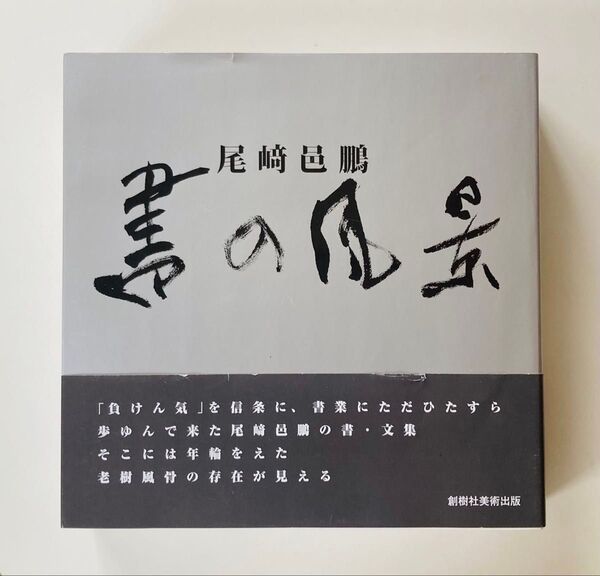 尾﨑邑鵬
書の風景
「負けん気」を信条に、書業にただひたすら
歩ゆんで来た尾﨑邑鵬の書・文集
そこには年輪をえた
老樹風骨の存在が見える
創樹社美術出版